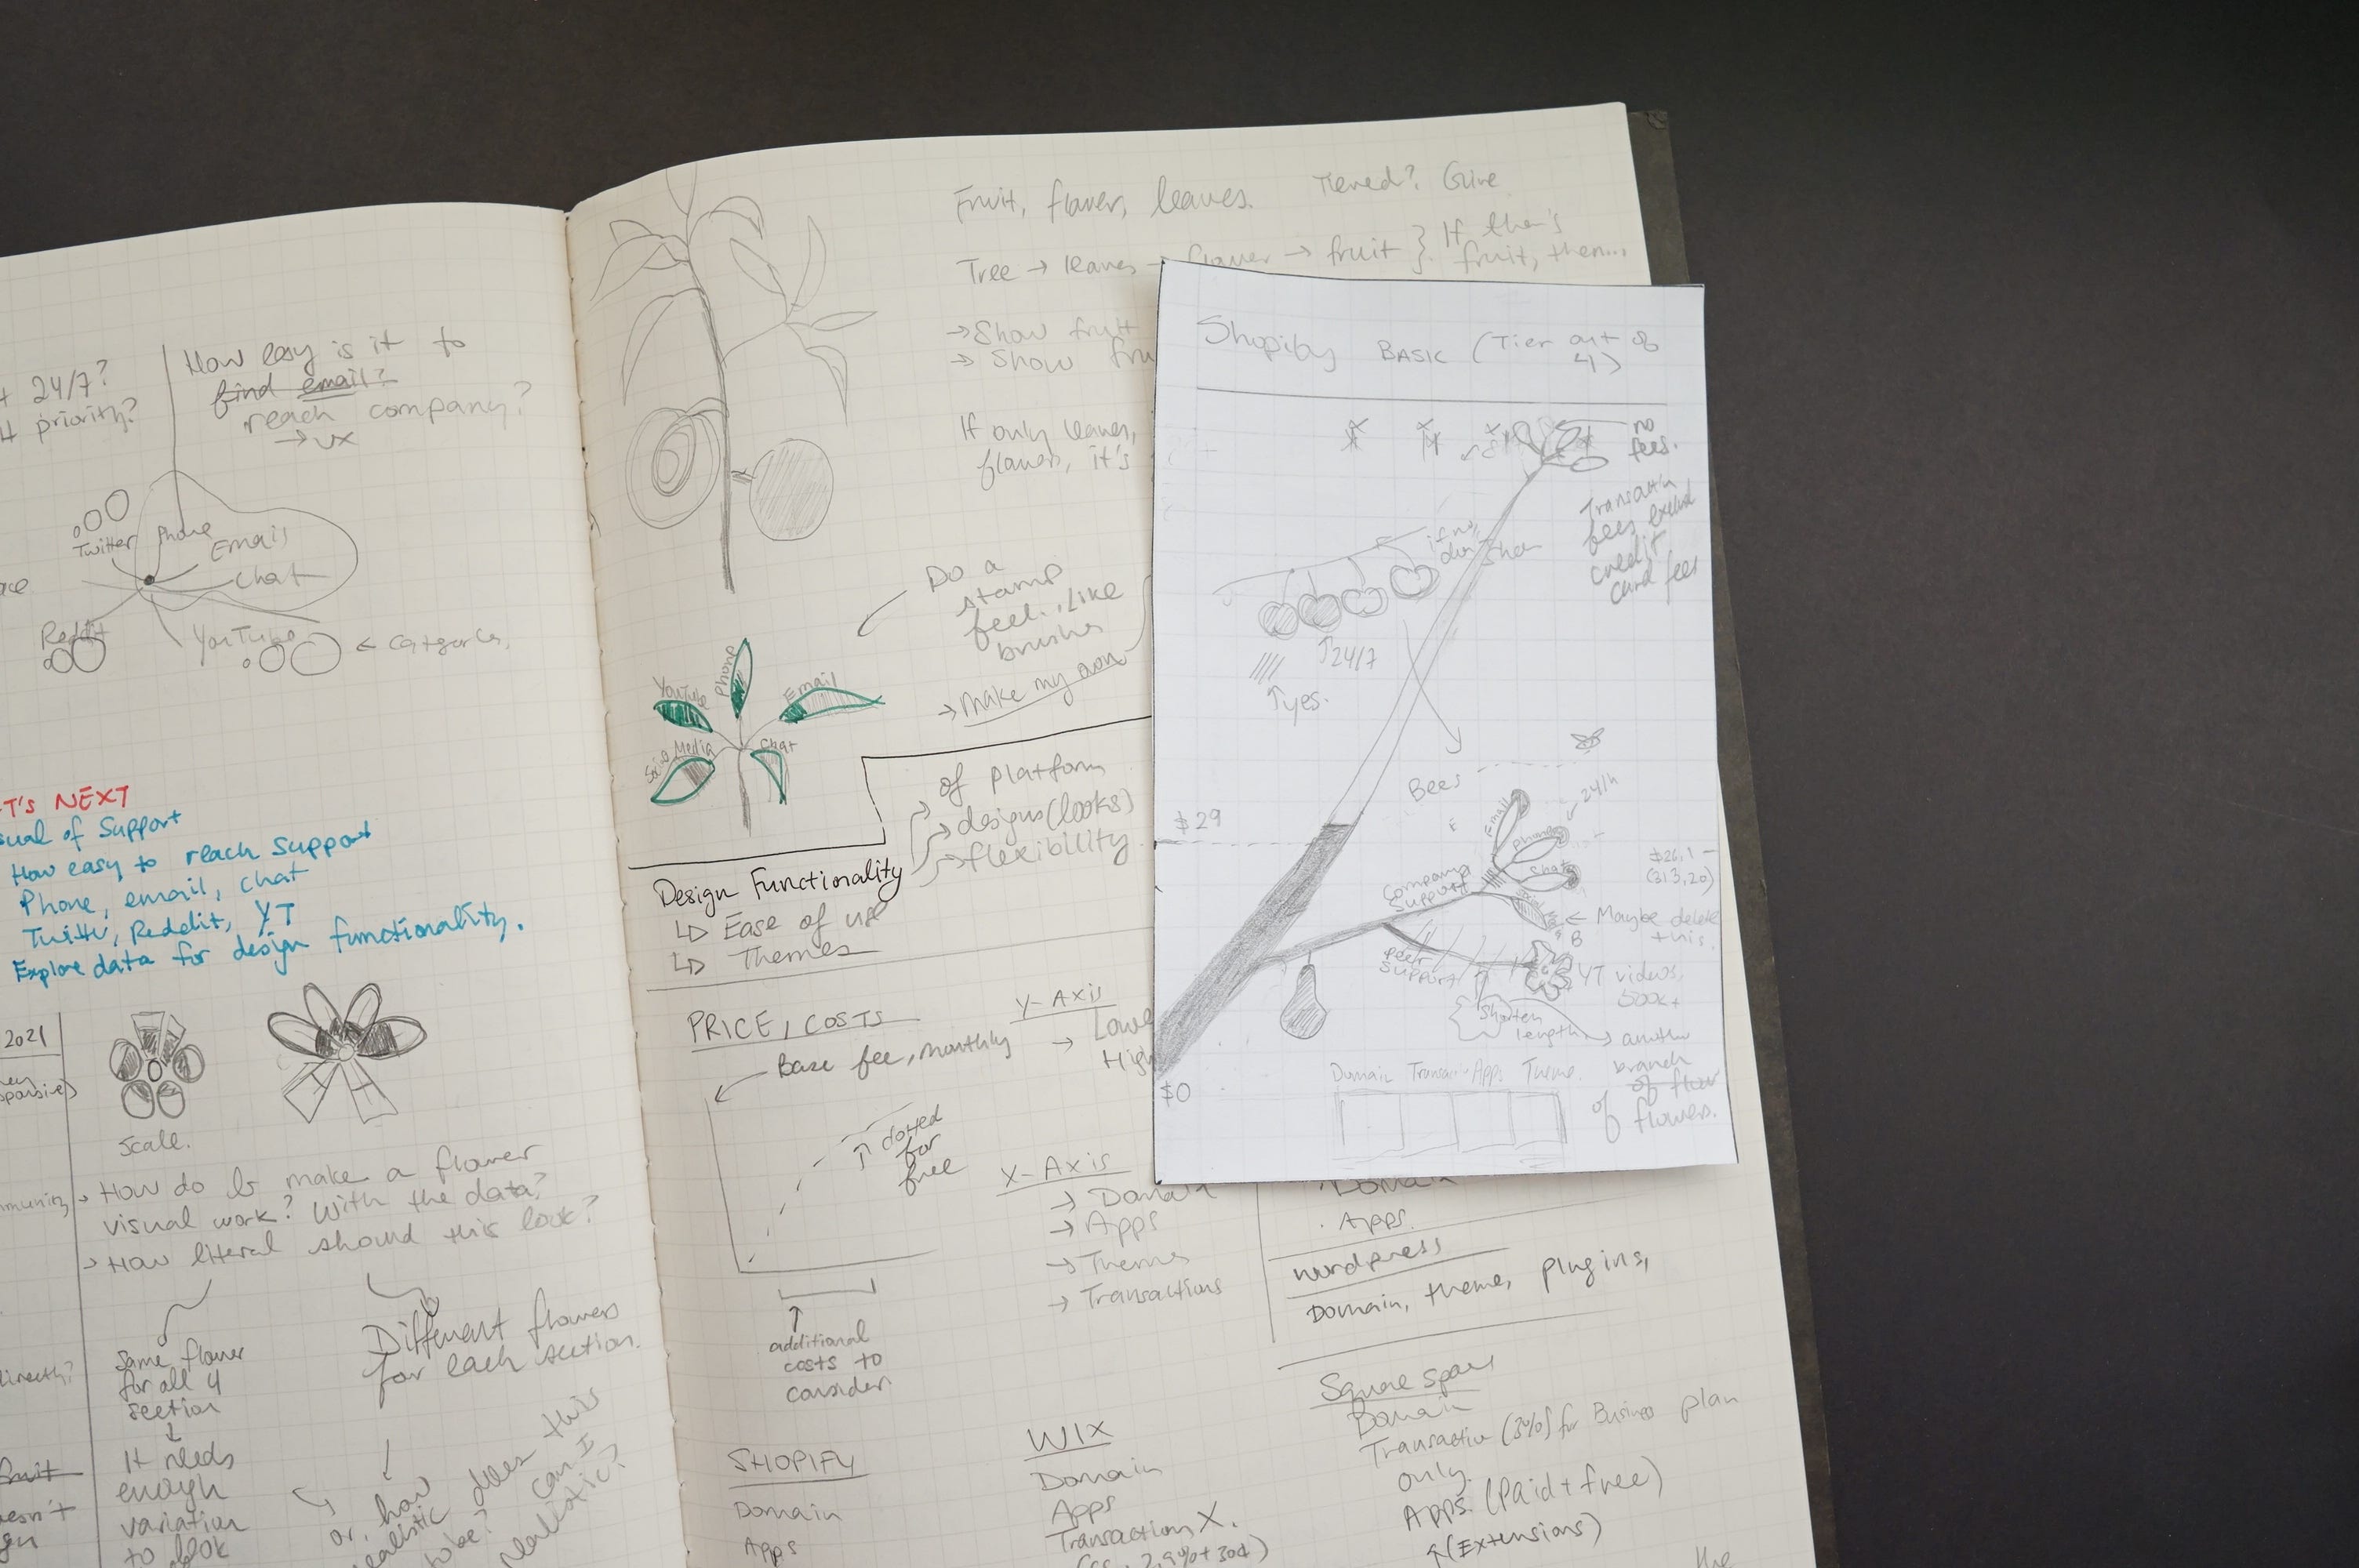 24/7?
priority?
How easy is it to
find email?
reach company?
→ UX
Twitter
Phone
Email
Chat
Reddit
YouTube
T's NEXT
sual of Support
How easy to reach support
Phone, email, chat
Twitter, Reddit, YT
Explore data for design functionality.
2021
Scale.
→ How do I make a flower
visual work? With the data?
→ How literal should this look?
Same flower
for all 4
section
↓
It needs
enough
variation
to look
Different flowers
for each section.
or, how
realistic does this
to be? can I
realistic?
Fruit, flower, leaves.
Tiered? Give
Tree → leaves → flower → fruit } If there's
fruit, then...
→ Show fruit
→ Show fru
If only leaves,
flowers, it's
Do a
stamp
feel.. like
brushes
→ Make my own
YouTube
Phone
Email
Social Media
Chat
of platform
designs (looks)
flexibility
Design Functionality
↳ Ease of use
↳ Themes
PRICE, COSTS
Base fee, monthly
Y-Axis
→ Lowe
High
dotted
for
free
additional
costs to
consider
X-Axis
→ Domain
→ Apps
→ Themes
→ Transactions
SHOPIFY
Domain
Apps
WIX
Domain
Apps
Transactions X.
2.9% + 30¢)
Domain
Apps.
Wordpress
Domain, theme, plugins,
Square space
Domain
Transaction (3%) for Business plan
only.
Apps. (Paid + free)
↑ (Extensions)
the
Shopify BASIC (Tier out of
4)
no
fees.
Transactn
fees exclud
credit
card fees
↑ 24/7
↑ yes.
Bees
$29
Email
Phone
Chat
24/h
Company
Support
← Maybe delete
this.
Peer
Support
YT videos,
500k+
Shorten
length
→ another
branch
of flow
of flowers.
Domain Transactn Apps Theme.
$0